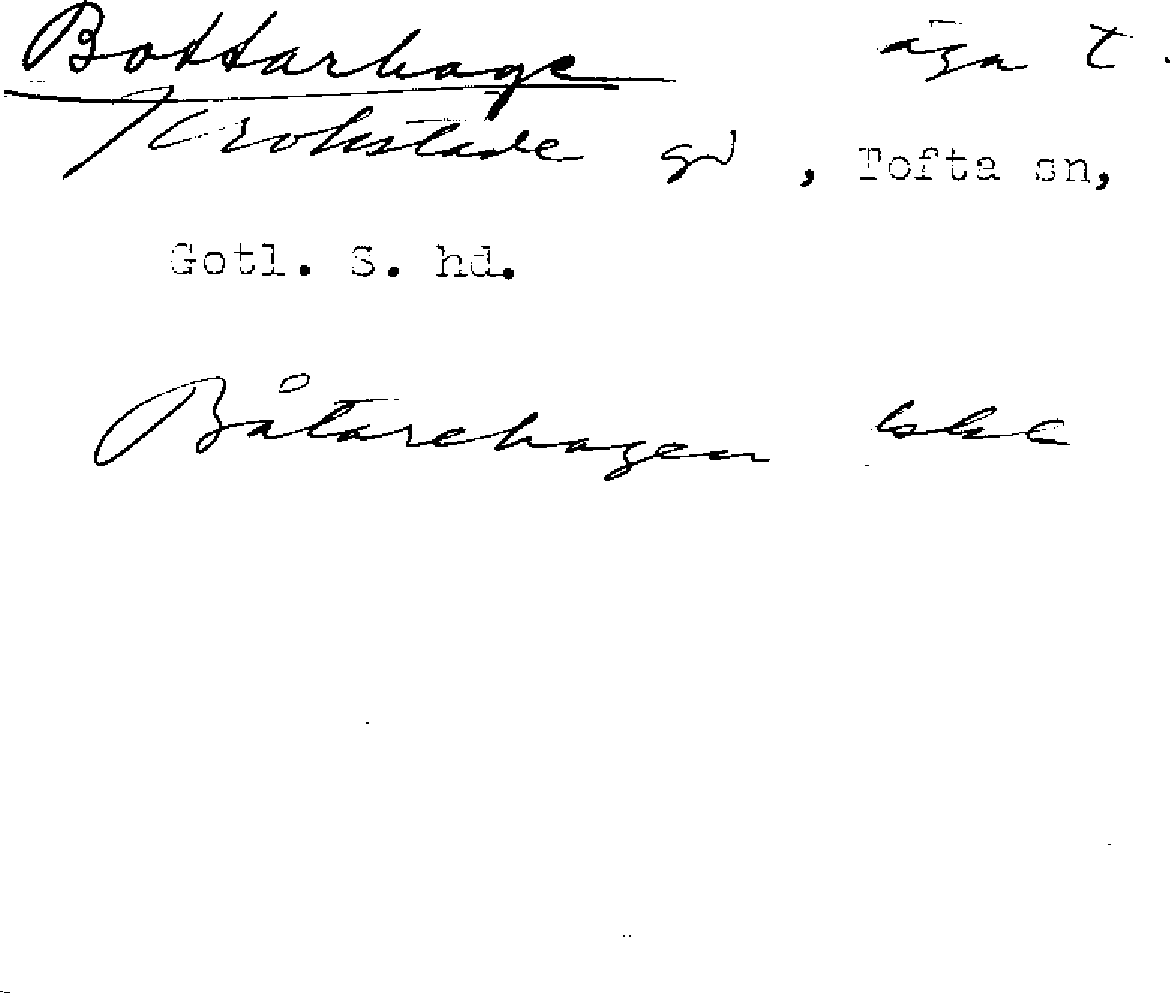 Bottarhage äga t.
Krokstäde gd , Tofta sn,
Gotl. S. hd.
Båtarehagen